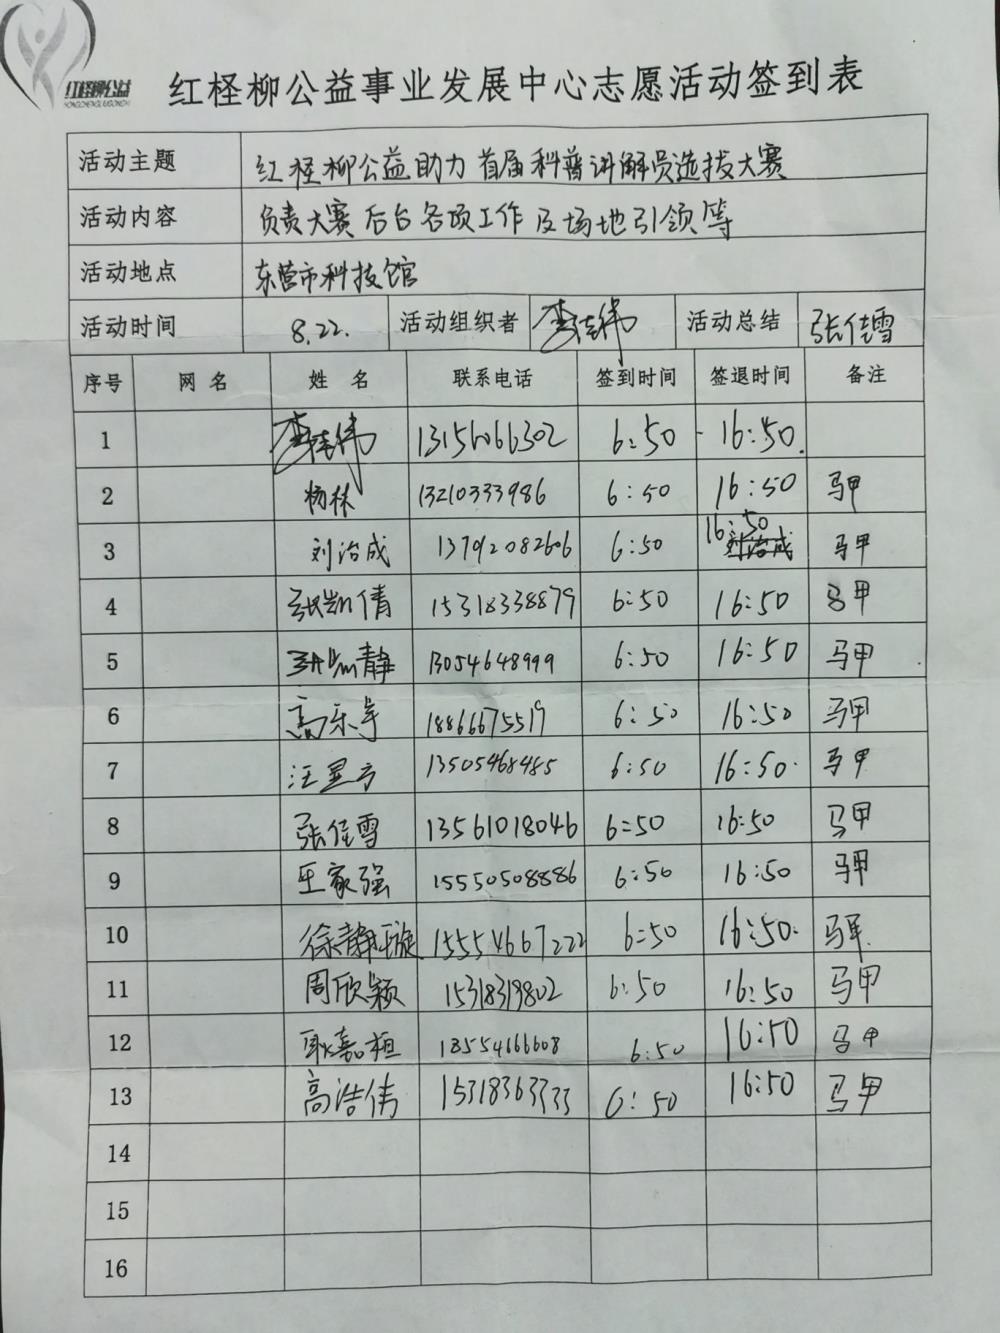 红柽柳公益
HONGCHENGLIUGONGYI
红柽柳公益事业发展中心志愿活动签到表
活动主题 红柽柳公益助力首届科普讲解员选拔大赛
活动内容 负责大赛后台各项工作及场地引领等
活动地点 东营市科技馆
活动时间 8.22. 活动组织者 活动总结 张佳雪
序号 网名 姓名 联系电话 签到时间 签退时间 备注
1 13156066302 6:50 16:50.
2 杨林 13210333986 6:50 16:50 马甲
3 刘治成 13792082606 6:50 16:50 马甲
4 张凯倩 15318338879 6:50 16:50 马甲
5 13054648999 6:50 16:50 马甲
6 高乐宇 18866675519 6:50 16:50 马甲
7 汪显方 13505468485 6:50 16:50. 马甲
8 张佳雪 13561018046 6:50 16:50 马甲
9 王家强 15550508886 6:50 16:50 马甲
10 徐静璇 15554667222 6:50 16:50. 马甲
11 周欣颖 15318319802 6:50 16:50 马甲
12 耿嘉桓 18554166608 6:50 16:50 马甲
13 高浩伟 15318363333 6:50 16:50 马甲
14
15
16